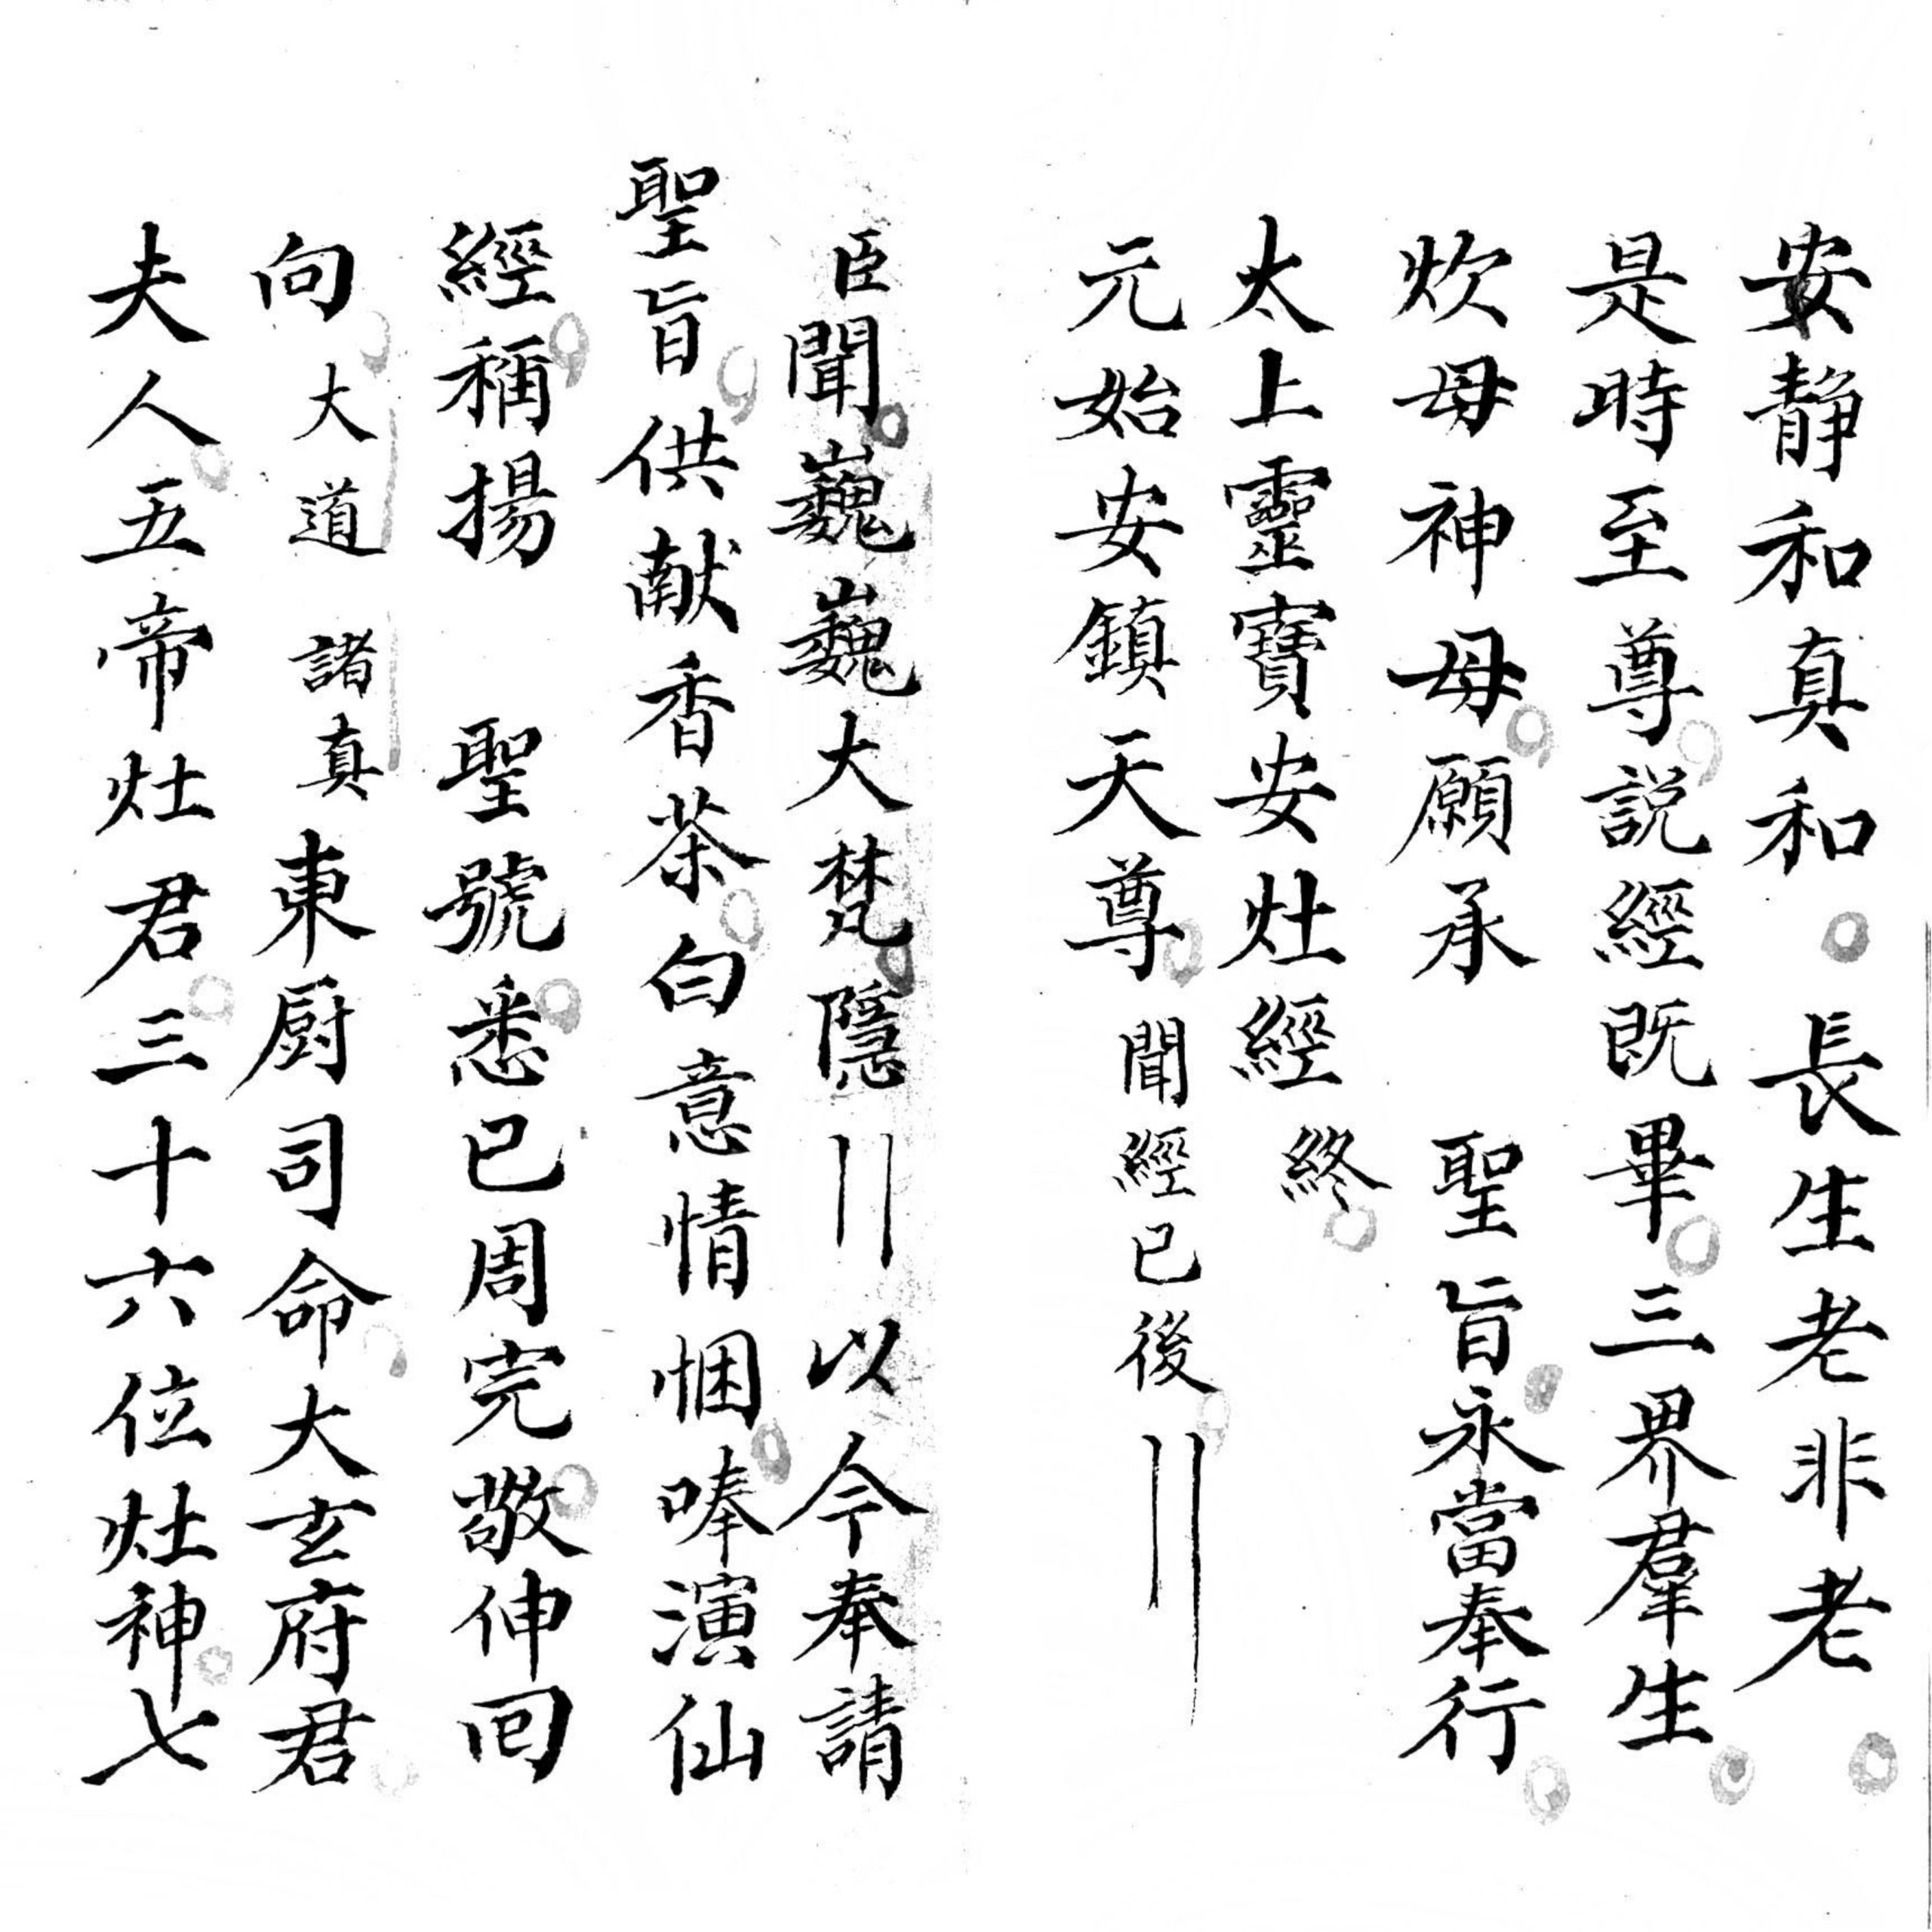 安静和真和長生老非老
是時至尊説經既畢三界羣生
炊母神母願承聖旨永當奉行
太上靈寶安灶經終
元始安鎮天尊聞經已後
臣聞巍巍大梵隱以今奉請
聖旨供献香茶白意情悃唪演仙
經稱揚聖號悉已周完敬伸回
向大道諸真東厨司命大玄府君
夫人五帝灶君三十六位灶神七